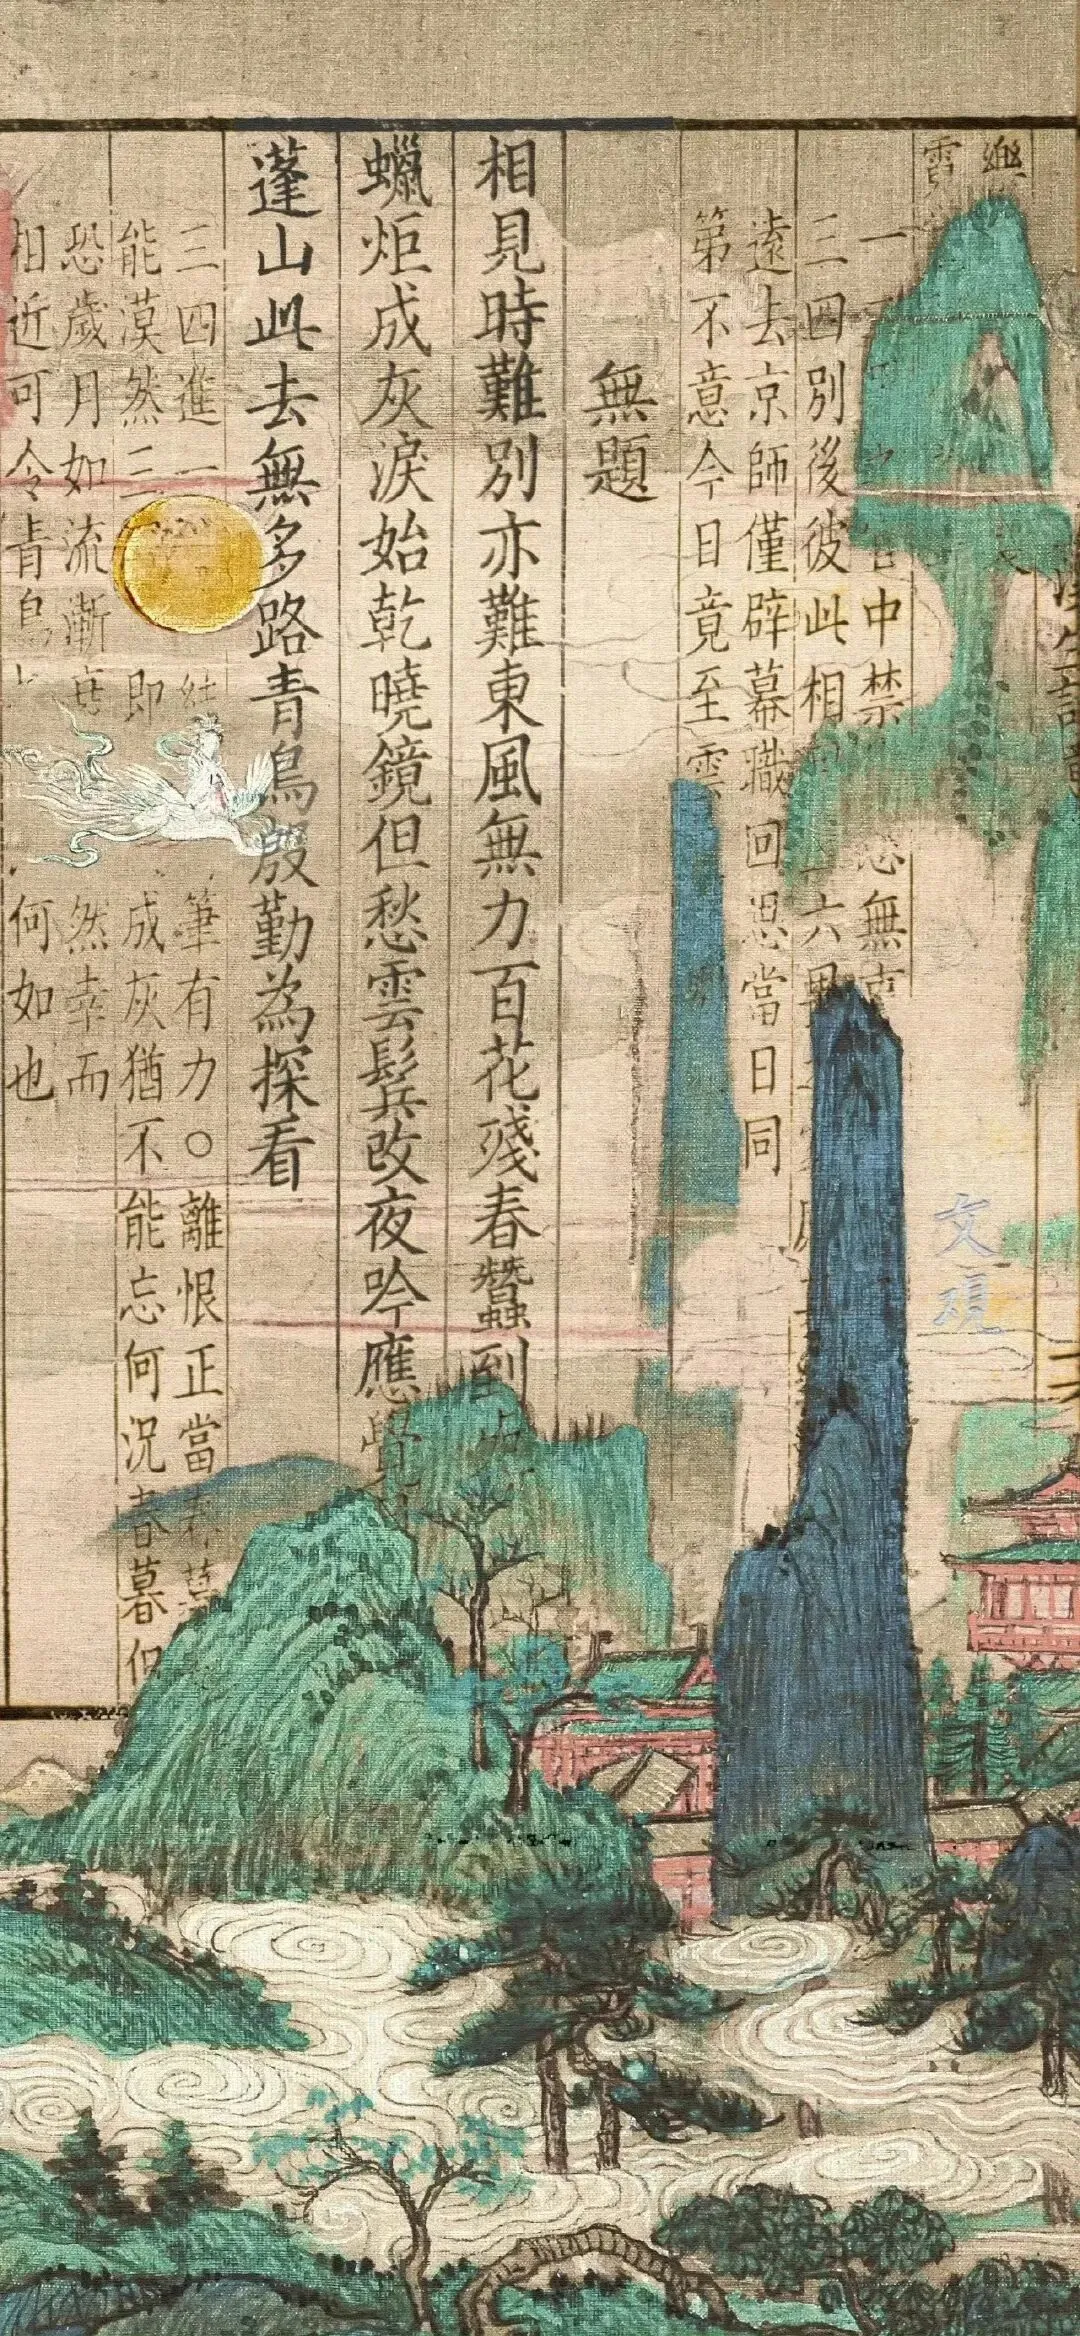 一
中禁
無
三四別後彼此相
六
遠去京師僅辟幕職回思當日同
第不意今日竟至雲
無題
相見時難別亦難東風無力百花殘春蠶到
蠟炬成灰淚始乾曉鏡但愁雲鬢改夜吟應覺
蓬山此去無多路青鳥殷勤為探看
三四進一
筆有力○離恨正當春
能漠然三
即
成灰猶不能忘何況春暮但
恐歲月如流漸
然幸而
相近可令青鳥
何如也